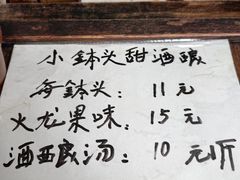 小鉢头甜酒酿
每鉢头: 11元
火龙果味: 15元
酒酿汤: 10元/斤